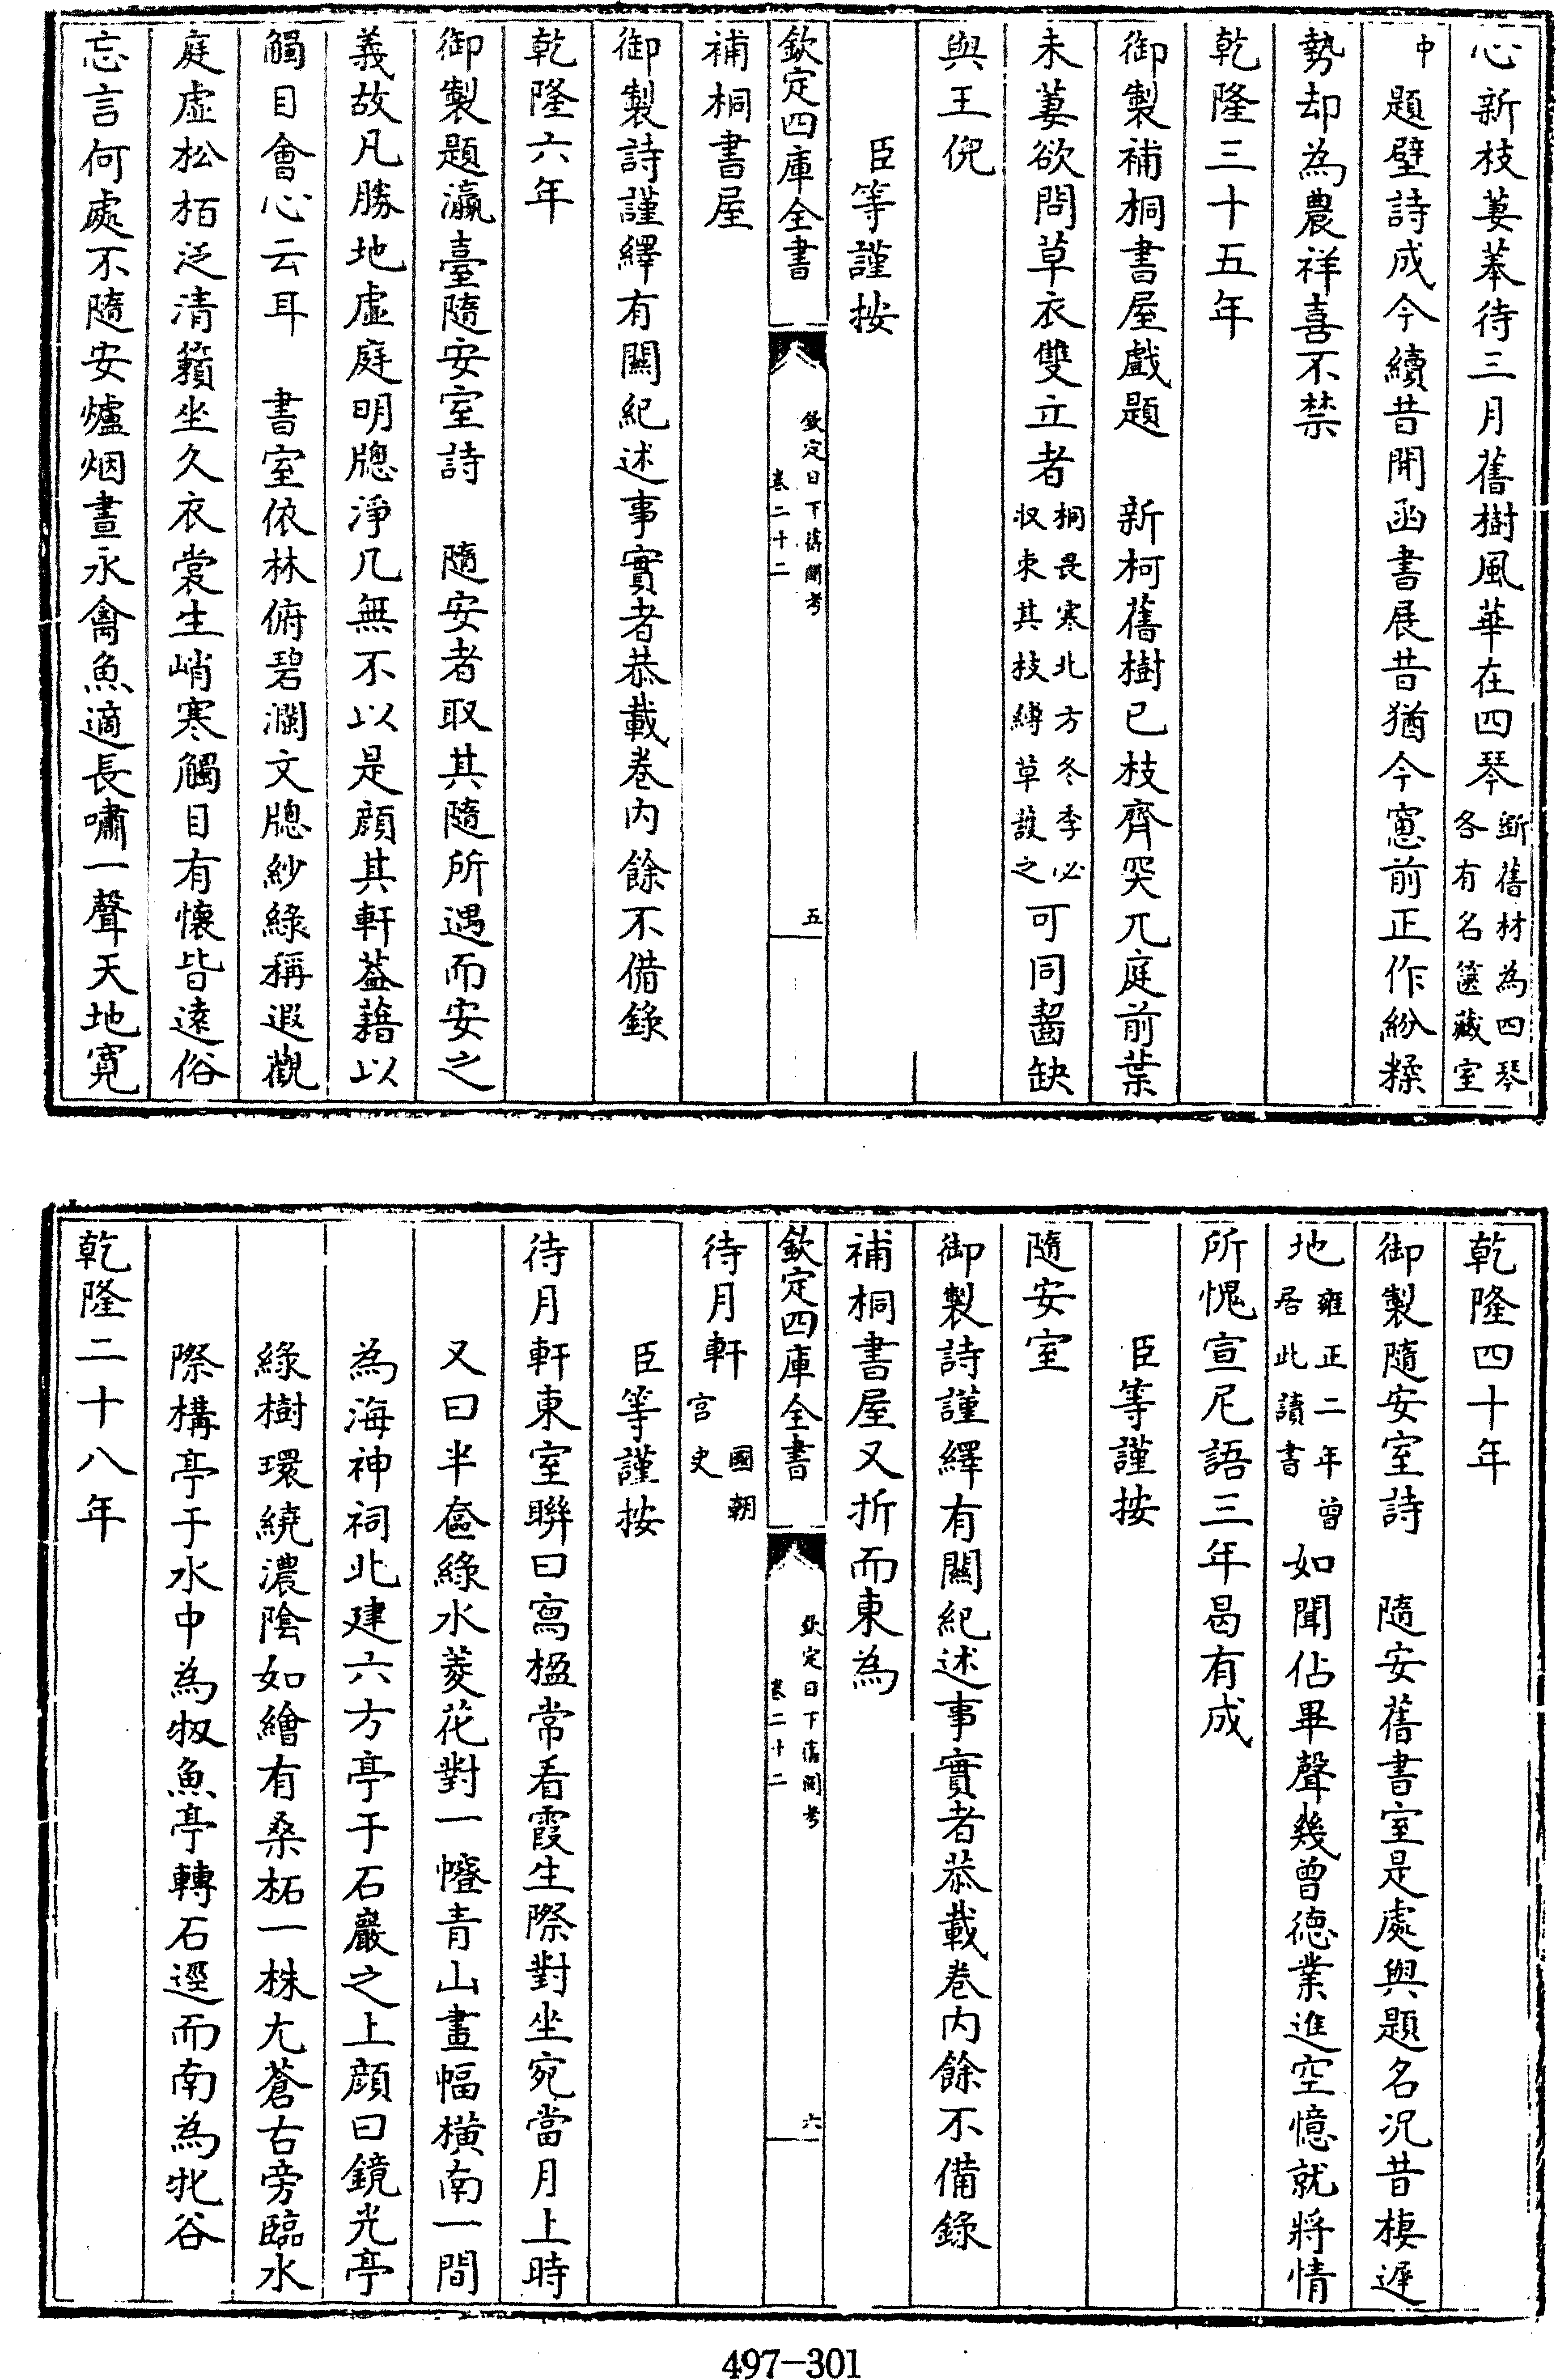 心新枝萋菶待三月舊樹風華在四琴斵舊材為四琴各有名篋藏室
中題壁詩成今續昔開函書展昔猶今窻前正作紛糅
勢却為農祥喜不禁
乾隆三十五年
御製補桐書屋戲題　新柯舊樹已枝齊突兀庭前葉
未萋欲問草衣雙立者桐畏寒北方冬季必収束其枝縛草護之可同齧缺
與王倪
臣等謹按
欽定四庫全書　欽定日下舊聞考　卷二十二　五
補桐書屋
御製詩謹繹有關紀述事實者恭載卷內餘不備錄
乾隆六年
御製題瀛臺隨安室詩　隨安者取其隨所遇而安之
義故凡勝地虛庭明牕淨几無不以是顔其軒葢藉以
觸目會心云耳　書室依林俯碧瀾文牕紗綠稱遐觀
庭虛松栢泛清籟坐久衣裳生峭寒觸目有懷皆遠俗
忘言何處不隨安爐烟晝永禽魚適長嘯一聲天地寛
乾隆四十年
御製隨安室詩　隨安舊書室是處與題名況昔棲遲
地雍正二年曾居此讀書如聞佔畢聲幾曾德業進空憶就將情
所愧宣尼語三年曷有成
臣等謹按
隨安室
御製詩謹繹有關紀述事實者恭載卷內餘不備錄
補桐書屋又折而東為
欽定四庫全書　欽定日下舊聞考　卷二十二　六
待月軒國朝宮史
臣等謹按
待月軒東室聯曰寫楹常看霞生際對坐宛當月上時
又曰半奩綠水菱花對一㡧青山畫幅橫南一間
為海神祠北建六方亭于石巖之上顔曰鏡光亭
綠樹環繞濃陰如繪有桑柘一株尤蒼古旁臨水
際構亭于水中為牣魚亭轉石逕而南為牝谷
乾隆二十八年
497-301